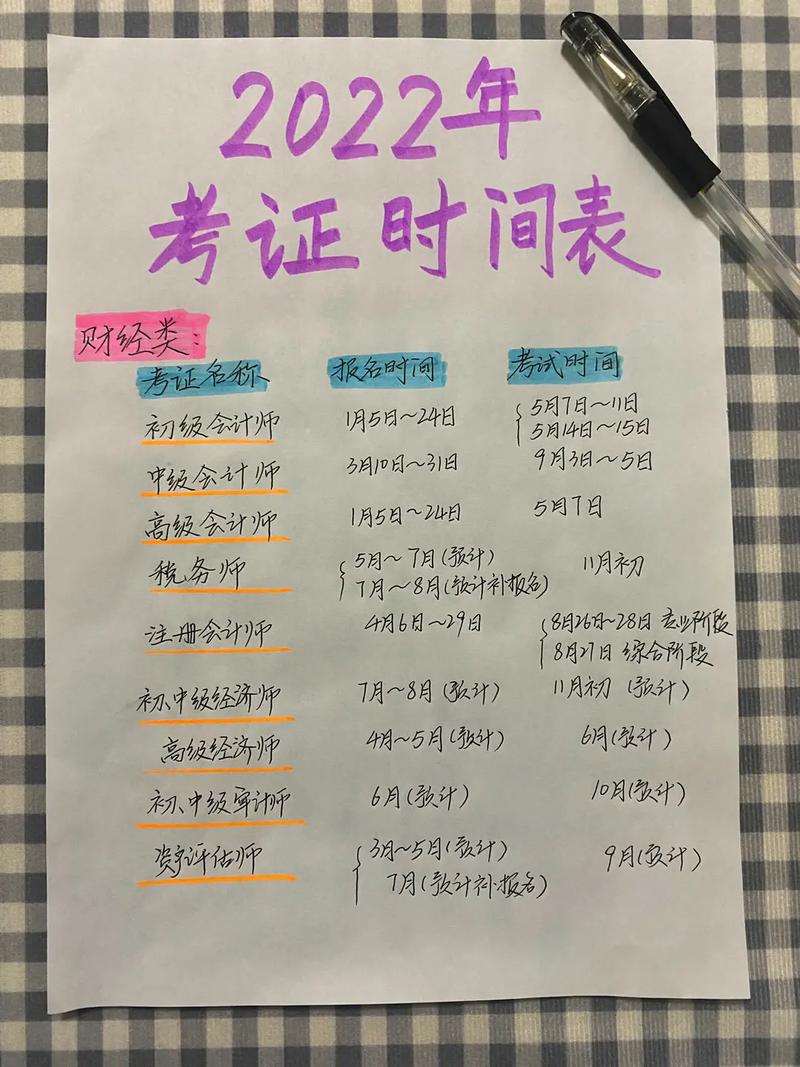 2022年
考证时间表
财经类：
考证名称 报名时间 考试时间
初级会计师 1月5日～24日 5月7日～11日
5月14日～15日
中级会计师 3月10日～31日 9月3日～5日
高级会计师 1月5日～24日 5月7日
税务师 5月～7月(预计) 11月初
7月～8月(预计补报名)
注册会计师 4月6日～29日 8月26日～28日 专业阶段
8月27日 综合阶段
初、中级经济师 7月～8月(预计) 11月初 (预计)
高级经济师 4月～5月(预计) 6月(预计)
初、中级审计师 6月(预计) 10月(预计)
资产评估师 3月～5月(预计) 9月(预计)
7月(预计补报名)